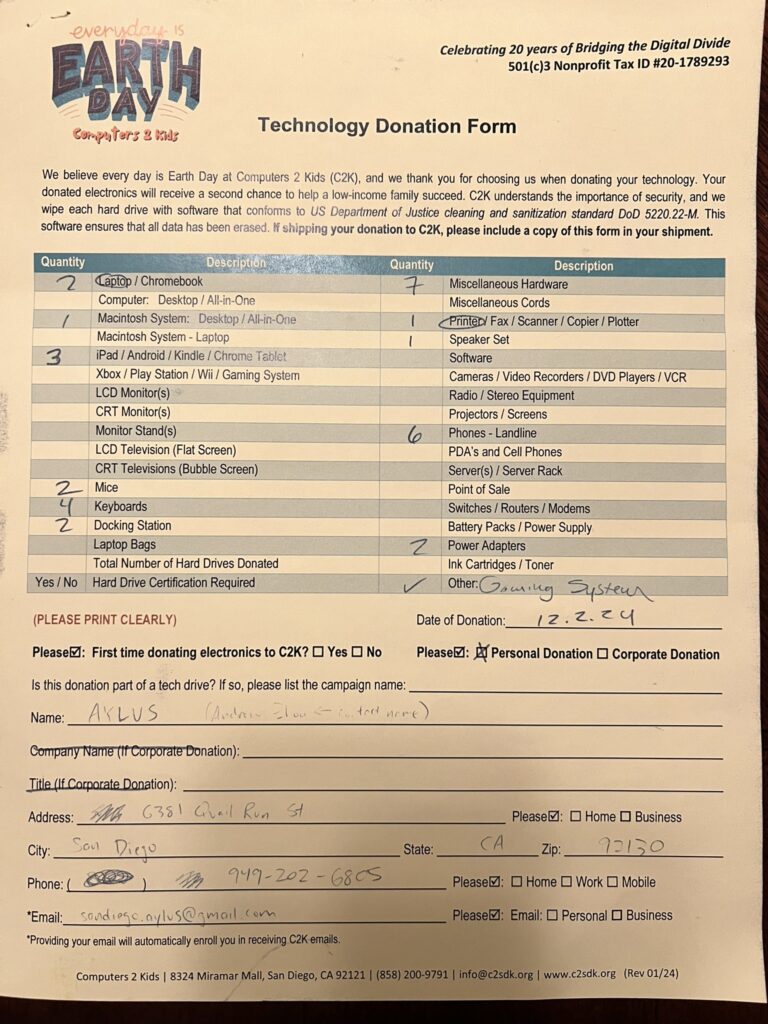 everyday IS
EARTH
DAY
Computers 2 Kids
Celebrating 20 years of Bridging the Digital Divide
501(c)3 Nonprofit Tax ID #20-1789293
Technology Donation Form
We believe every day is Earth Day at Computers 2 Kids (C2K), and we thank you for choosing us when donating your technology. Your
donated electronics will receive a second chance to help a low-income family succeed. C2K understands the importance of security, and we
wipe each hard drive with software that conforms to US Department of Justice cleaning and sanitization standard DoD 5220.22-M. This
software ensures that all data has been erased. If shipping your donation to C2K, please include a copy of this form in your shipment.
Quantity Description Quantity Description
2 Laptop / Chromebook 7 Miscellaneous Hardware
Computer: Desktop / All-in-One Miscellaneous Cords
1 Macintosh System: Desktop / All-in-One 1 Printer / Fax / Scanner / Copier / Plotter
Macintosh System - Laptop 1 Speaker Set
3 iPad / Android / Kindle / Chrome Tablet Software
Xbox / Play Station / Wii / Gaming System Cameras / Video Recorders / DVD Players / VCR
LCD Monitor(s) Radio / Stereo Equipment
CRT Monitor(s) Projectors / Screens
Monitor Stand(s) 6 Phones - Landline
LCD Television (Flat Screen) PDA's and Cell Phones
CRT Televisions (Bubble Screen) Server(s) / Server Rack
2 Mice Point of Sale
4 Keyboards Switches / Routers / Modems
2 Docking Station Battery Packs / Power Supply
Laptop Bags 2 Power Adapters
Total Number of Hard Drives Donated Ink Cartridges / Toner
Yes / No Hard Drive Certification Required ✓ Other: Gaming System
(PLEASE PRINT CLEARLY) Date of Donation: 12.2.24
Please☑: First time donating electronics to C2K? ☐ Yes ☐ No Please☑: ☒ Personal Donation ☐ Corporate Donation
Is this donation part of a tech drive? If so, please list the campaign name:
Name: AYLUS (Andrew ← contact name)
Company Name (If Corporate Donation):
Title (If Corporate Donation):
Address: 6381 Quail Run St Please☑: ☐ Home ☐ Business
City: San Diego State: CA Zip: 92130
Phone: ( ) 949-202-6805 Please☑: ☐ Home ☐ Work ☐ Mobile
*Email: sandiego.aylus@gmail.com Please☑: Email: ☐ Personal ☐ Business
*Providing your email will automatically enroll you in receiving C2K emails.
Computers 2 Kids | 8324 Miramar Mall, San Diego, CA 92121 | (858) 200-9791 | info@c2sdk.org | www.c2sdk.org (Rev 01/24)